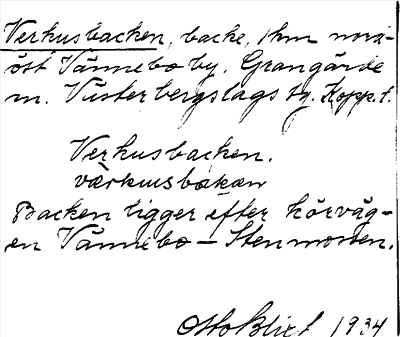 Verkusbacken, backe, 1 km nord-
öst Vännebo by. Grangärde
sn. Västerbergslags tg. Kopp. l.
Verkusbacken.
värkusbakan
Backen ligger efter körväg-
en Vännebo – Stenmossen.
Otto Blixt 1934